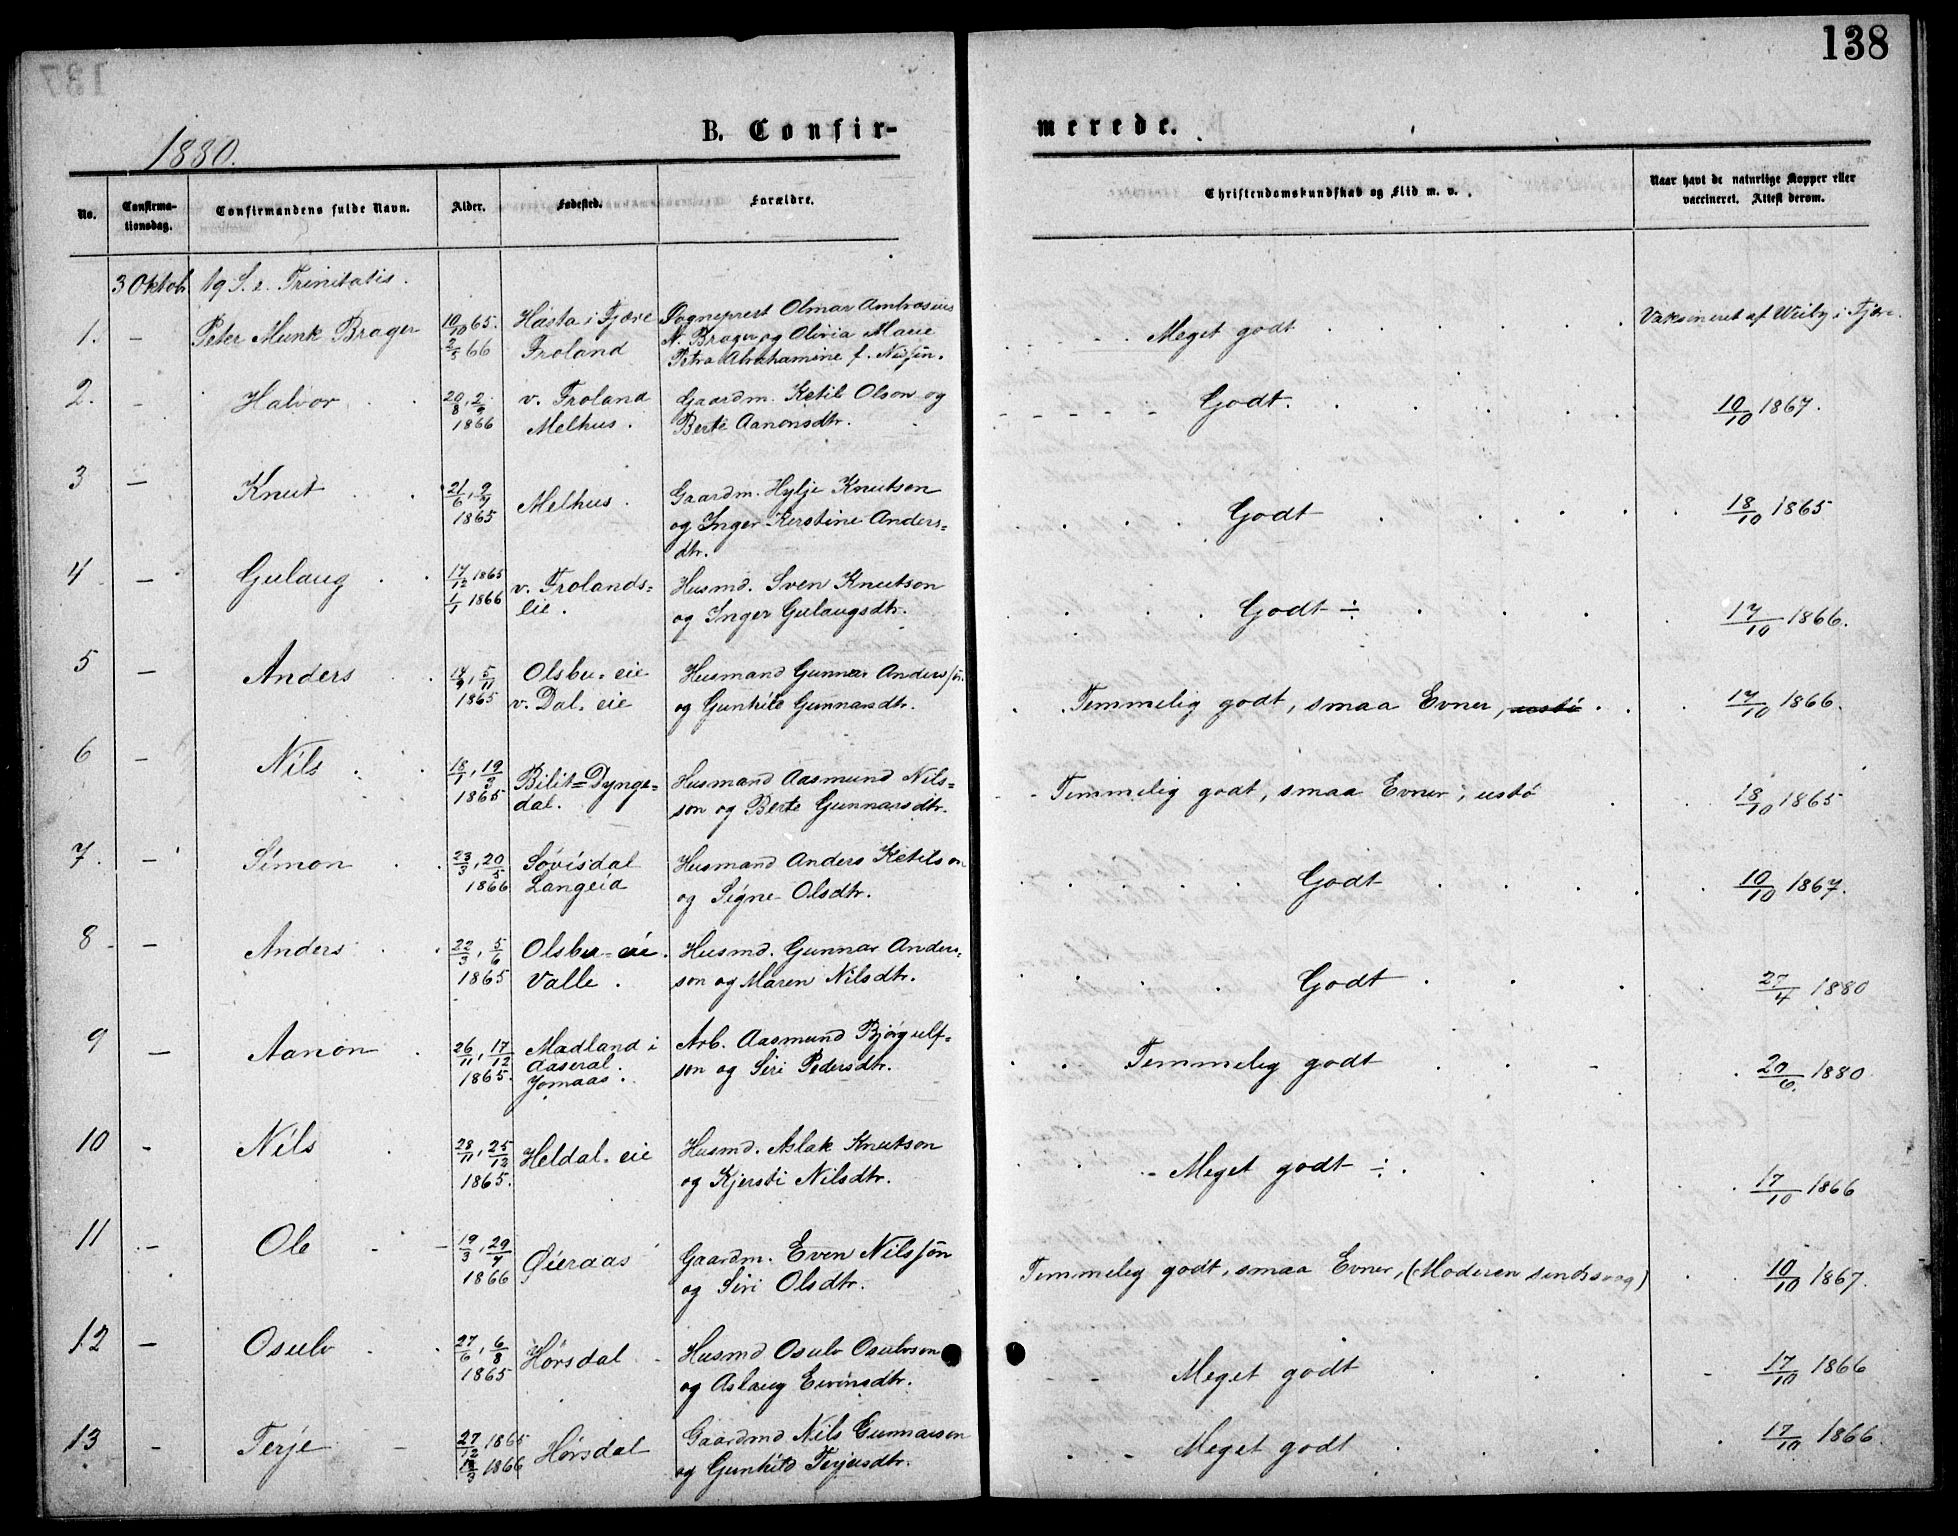 138
1880.
B. Confir-
merede.
No.
Confirma-
tionsdag.
Confirmandens fulde Navn.
Alder.
Fødested.
Forældre.
Christendomskundskab og Flid m. v.
Naar havt de naturlige Kopper eller
vaccineret. Attest derom.
3 Oktob. 19 S. e. Trinitatis.
1. – Peter Munk Brager 10/10 65. Hasta i Fjære Sogneprest Olmar Ambrosius
2/5 66 Froland N. Brager og Olivia Marie
Petra Abrahamine f.
Meget godt Vaksineret af Wiiby i Fjære.
2. – Halvor 20/8, 2/9 v. Froland Gaardm. Ketil Olson og
1866 Melhus. Berte Aanonsdtr.
Godt. 10/10 1867.
3 – Knut 21/6, 9/7 Melhus. Gaardm. Hylje Knutson
1865 og Inger Kerstine Anders=
dtr.
Godt 18/10 1865
4 – Gulaug 17/12 1865 v. Frolands= Husmd. Sven Knutson
1/1 1866 eie. og Inger Gulaugsdtr.
Godt ÷ 17/10 1866.
5 – Anders 14/9, 5/11 Olsbu. eie Husmand Gunnar Andersjøn
1865 v. Dal. eie og Gunhild Gunnarsdtr.
Temmelig godt, smaa Evner, ustø 17/10 1866.
6 – Nils 18/1, 19/3 Bilit=Dynge= Husmand Aasmund Nils=
1865 dal. son og Berte Gunnarsdtr.
Temmelig godt, smaa Evner, ustø 18/10 1865
7. – Simon 23/3, 20/5 Søvisdal Husmand Anders Ketilson
1866 Langeid og Signe Olsdtr.
Godt 10/10 1867.
8 – Anders 22/3, 5/6 Olsbu-eie. Husmd. Gunnar Anders=
1865 Valle. son og Maren Nilsdtr.
Godt 27/4 1880
9 – Aanon 26/11, 17/12 Madland i Arb. Aasmund Bjørgulf=
1865. Aaseral. son og Siri Pedersdtr.
Jomaas.
Temmelig godt 20/6. 1880
10 – Nils 28/11, 25/12 Heldal. eie Husmd. Aslak Knutson
1865. og Kjersti Nilsdtr.
Meget godt ÷ 17/10 1866
11 – Ole 19/3, 29/4 Øieraas Gaardm. Even Nilsjøn
1866 og Siri Olsdtr.
Temmelig godt, smaa Evner, (Moderen sindssvag) 10/10 1867.
12 – Osulv 27/6, 6/8 Hørsdal Husmd Osulv Osulvson
1865 og Aslaug Evinsdtr.
Meget godt 17/10 1866
13 – Terje 27/12 1865 Hørsdal Gaardmd Nils Gunnarson
1866 og Gunhild Terjesdtr.
Meget godt 17/10 1866.